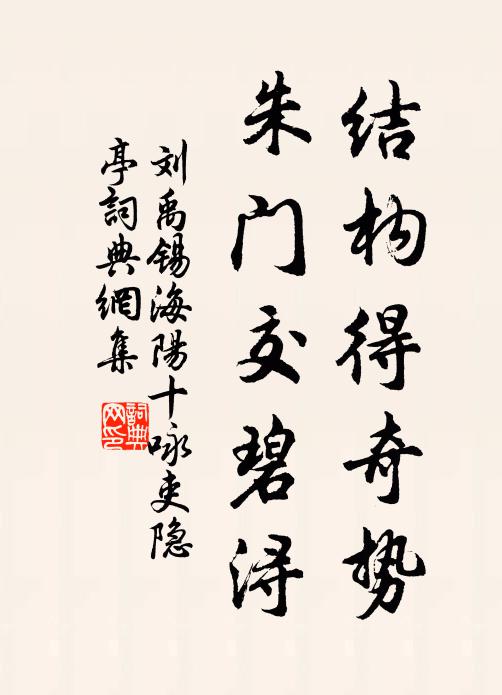 结构得奇势
朱门交碧浔
刘禹锡海陽十咏吏隐
亭詞典網集
詞典
网印